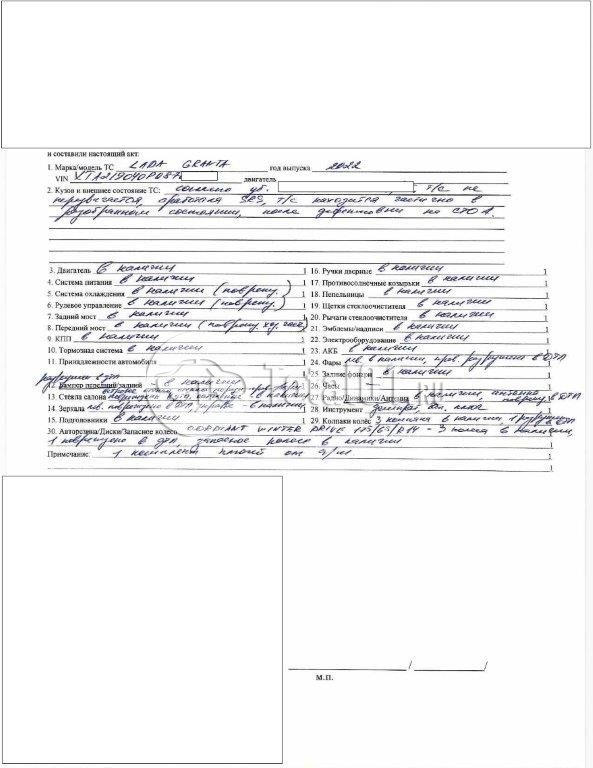 и составили настоящий акт:
1. Марка/модель ТС LADA GRANTA год выпуска 2022
VIN XTA219040P087 двигатель
2. Кузов и внешнее состояние ТС: согласно уб. т/с не
передвигается, сработала SRS, т/с находится частично в
разобранном состоянии, после дефектовки на СТОА.
3. Двигатель в наличии 1 16. Ручки дверные в наличии 1
4. Система питания в наличии 1 17. Противосолнечные козырьки в наличии 1
5. Система охлаждения в наличии (поврежд.) 1 18. Пепельницы в наличии 1
6. Рулевое управление в наличии (поврежд.) 1 19. Щетки стеклоочистителя в наличии 1
7. Задний мост в наличии 1 20. Рычаги стеклоочистителя в наличии 1
8. Передний мост в наличии (поврежд. 1 21. Эмблемы/надписи в наличии 1
9. КПП в наличии 1 22. Электрооборудование в наличии 1
10. Тормозная система в наличии 1 23. АКБ в наличии 1
11. Принадлежности автомобиля 24. Фары лев. в наличии, прав. разрушена в ДТП
1 25. Задние фонари в наличии 1
разрушен в ДТП
12. Бампер передний/задний в наличии 1 26. Часы 1
13. Стёкла салона в наличии 27. Радио/Динамики/Антенна в наличии, антенна поврежд в ДТП
14. Зеркала лев. повреждено в ДТП, правое - в наличии 28. Инструмент домкрат, ключ
15. Подголовники в наличии 1 29. Колпаки колёс 3 колпака в наличии, 1 разрушен в ДТП
30. Авторезина/Диски/Запасное колесо CORDIANT WINTER DRIVE 175/65/R14 - 3 колеса в наличии,
1 повреждено в ДТП, запасное колесо в наличии 1
Примечание: 1 комплект ключей от а/м 1
1
/ /
М.П.